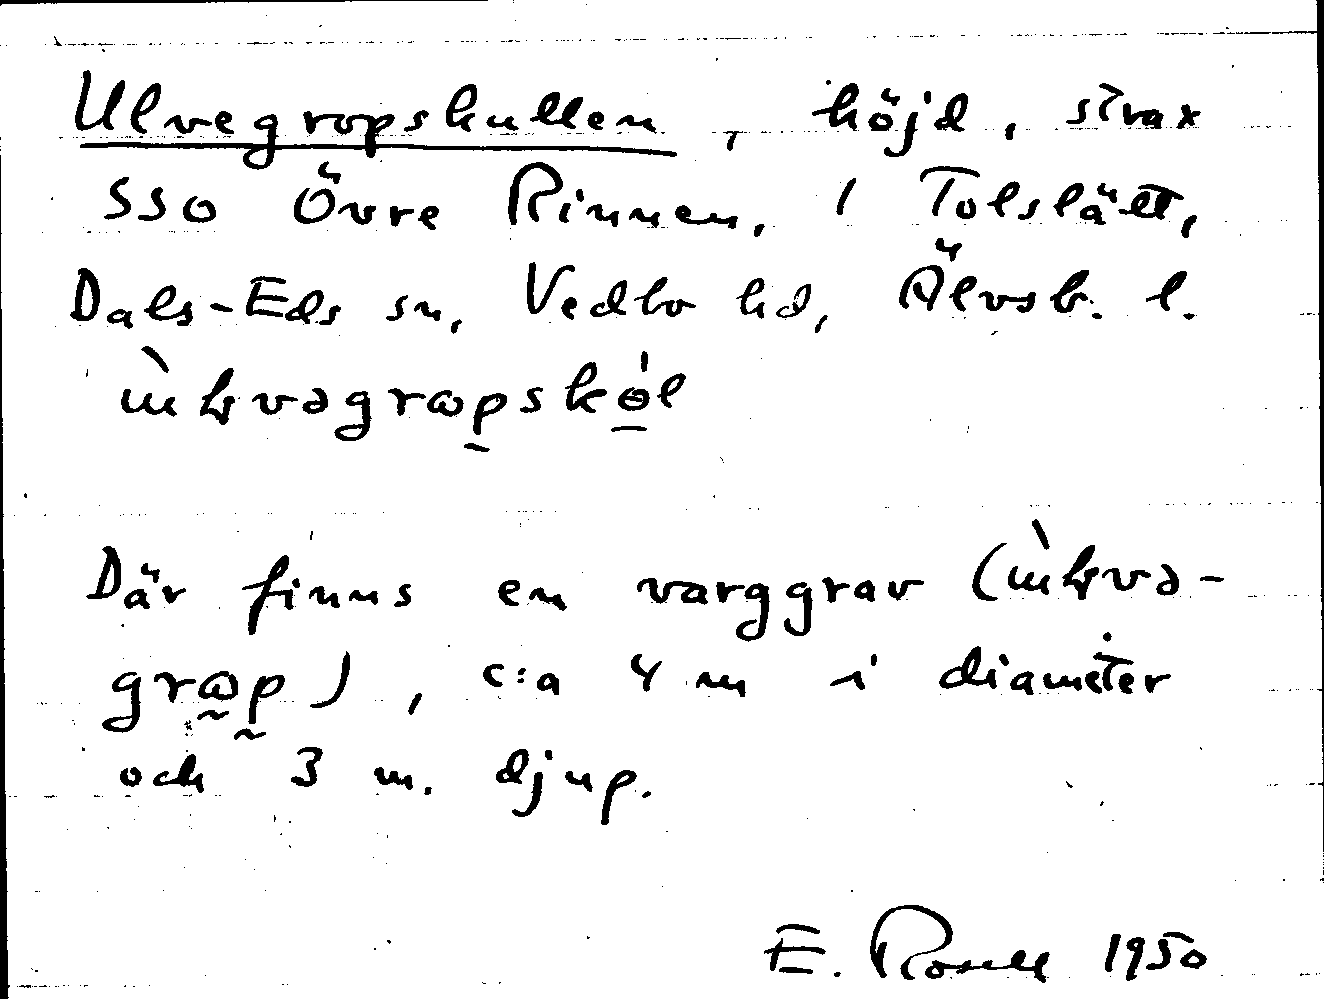 Ulvegropskullen, höjd, strax
SSO Övre Rinnen, 1 Tolslätt,
Dals-Eds sn, Vedbo hd, Älvsb. l.
Där finns en varggrav
c:a 4 m i diameter
och 3 m. djup.
E. Rosell 1950